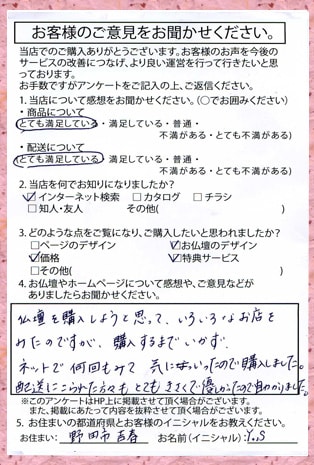 お客様のご意見をお聞かせください。
当店でのご購入ありがとうございます。お客様のお声を今後の
サービスの改善につなげ、より良い運営を行って行きたいと思
っております。
お手数ですがアンケートをご記入の上、ご返信ください。
1. 当店について感想をお聞かせください。(○でお囲みください)
・商品について
とても満足している・満足している・普通・
不満がある・とても不満がある)
・配送について
(とても満足している・満足している・普通・
不満がある・とても不満がある)
2. 当店を何でお知りになりましたか?
☑インターネット検索 □カタログ □チラシ
□知人・友人 その他( )
3. どのような点をご覧になり、ご購入したいと思われましたか?
□ページのデザイン ☑お仏壇のデザイン
☑価格 ☑特典サービス
□その他( )
4. お仏壇やホームページについて感想や、ご意見などが
ありましたらお聞かせください。
仏壇を購入しようと思って、いろいろなお店を
みたのですが、購入するまでいかず、
ネットで何回もみて 気にいったので購入しました。
配送にこられた方々も とてもきさくで優しかったので助かりました。
※このアンケートはHP上に掲載させて頂く場合がございます。
また、掲載にあたって内容を抜粋させて頂く場合がございます。
5. お住まいの都道府県とお客様のイニシャルをお教えください。
お住まい: 野田市吉春 お名前(イニシャル): Y.S